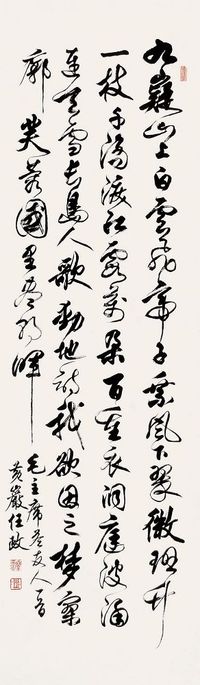 九嶷山上白雲飛帝子乘風下翠微斑竹
一枝千滴淚紅霞萬朵百重衣洞庭波涌
連天雪長島人歌動地詩我欲因之夢寥
廓芙蓉國里盡朝暉
毛主席答友人一首
黄巖任政